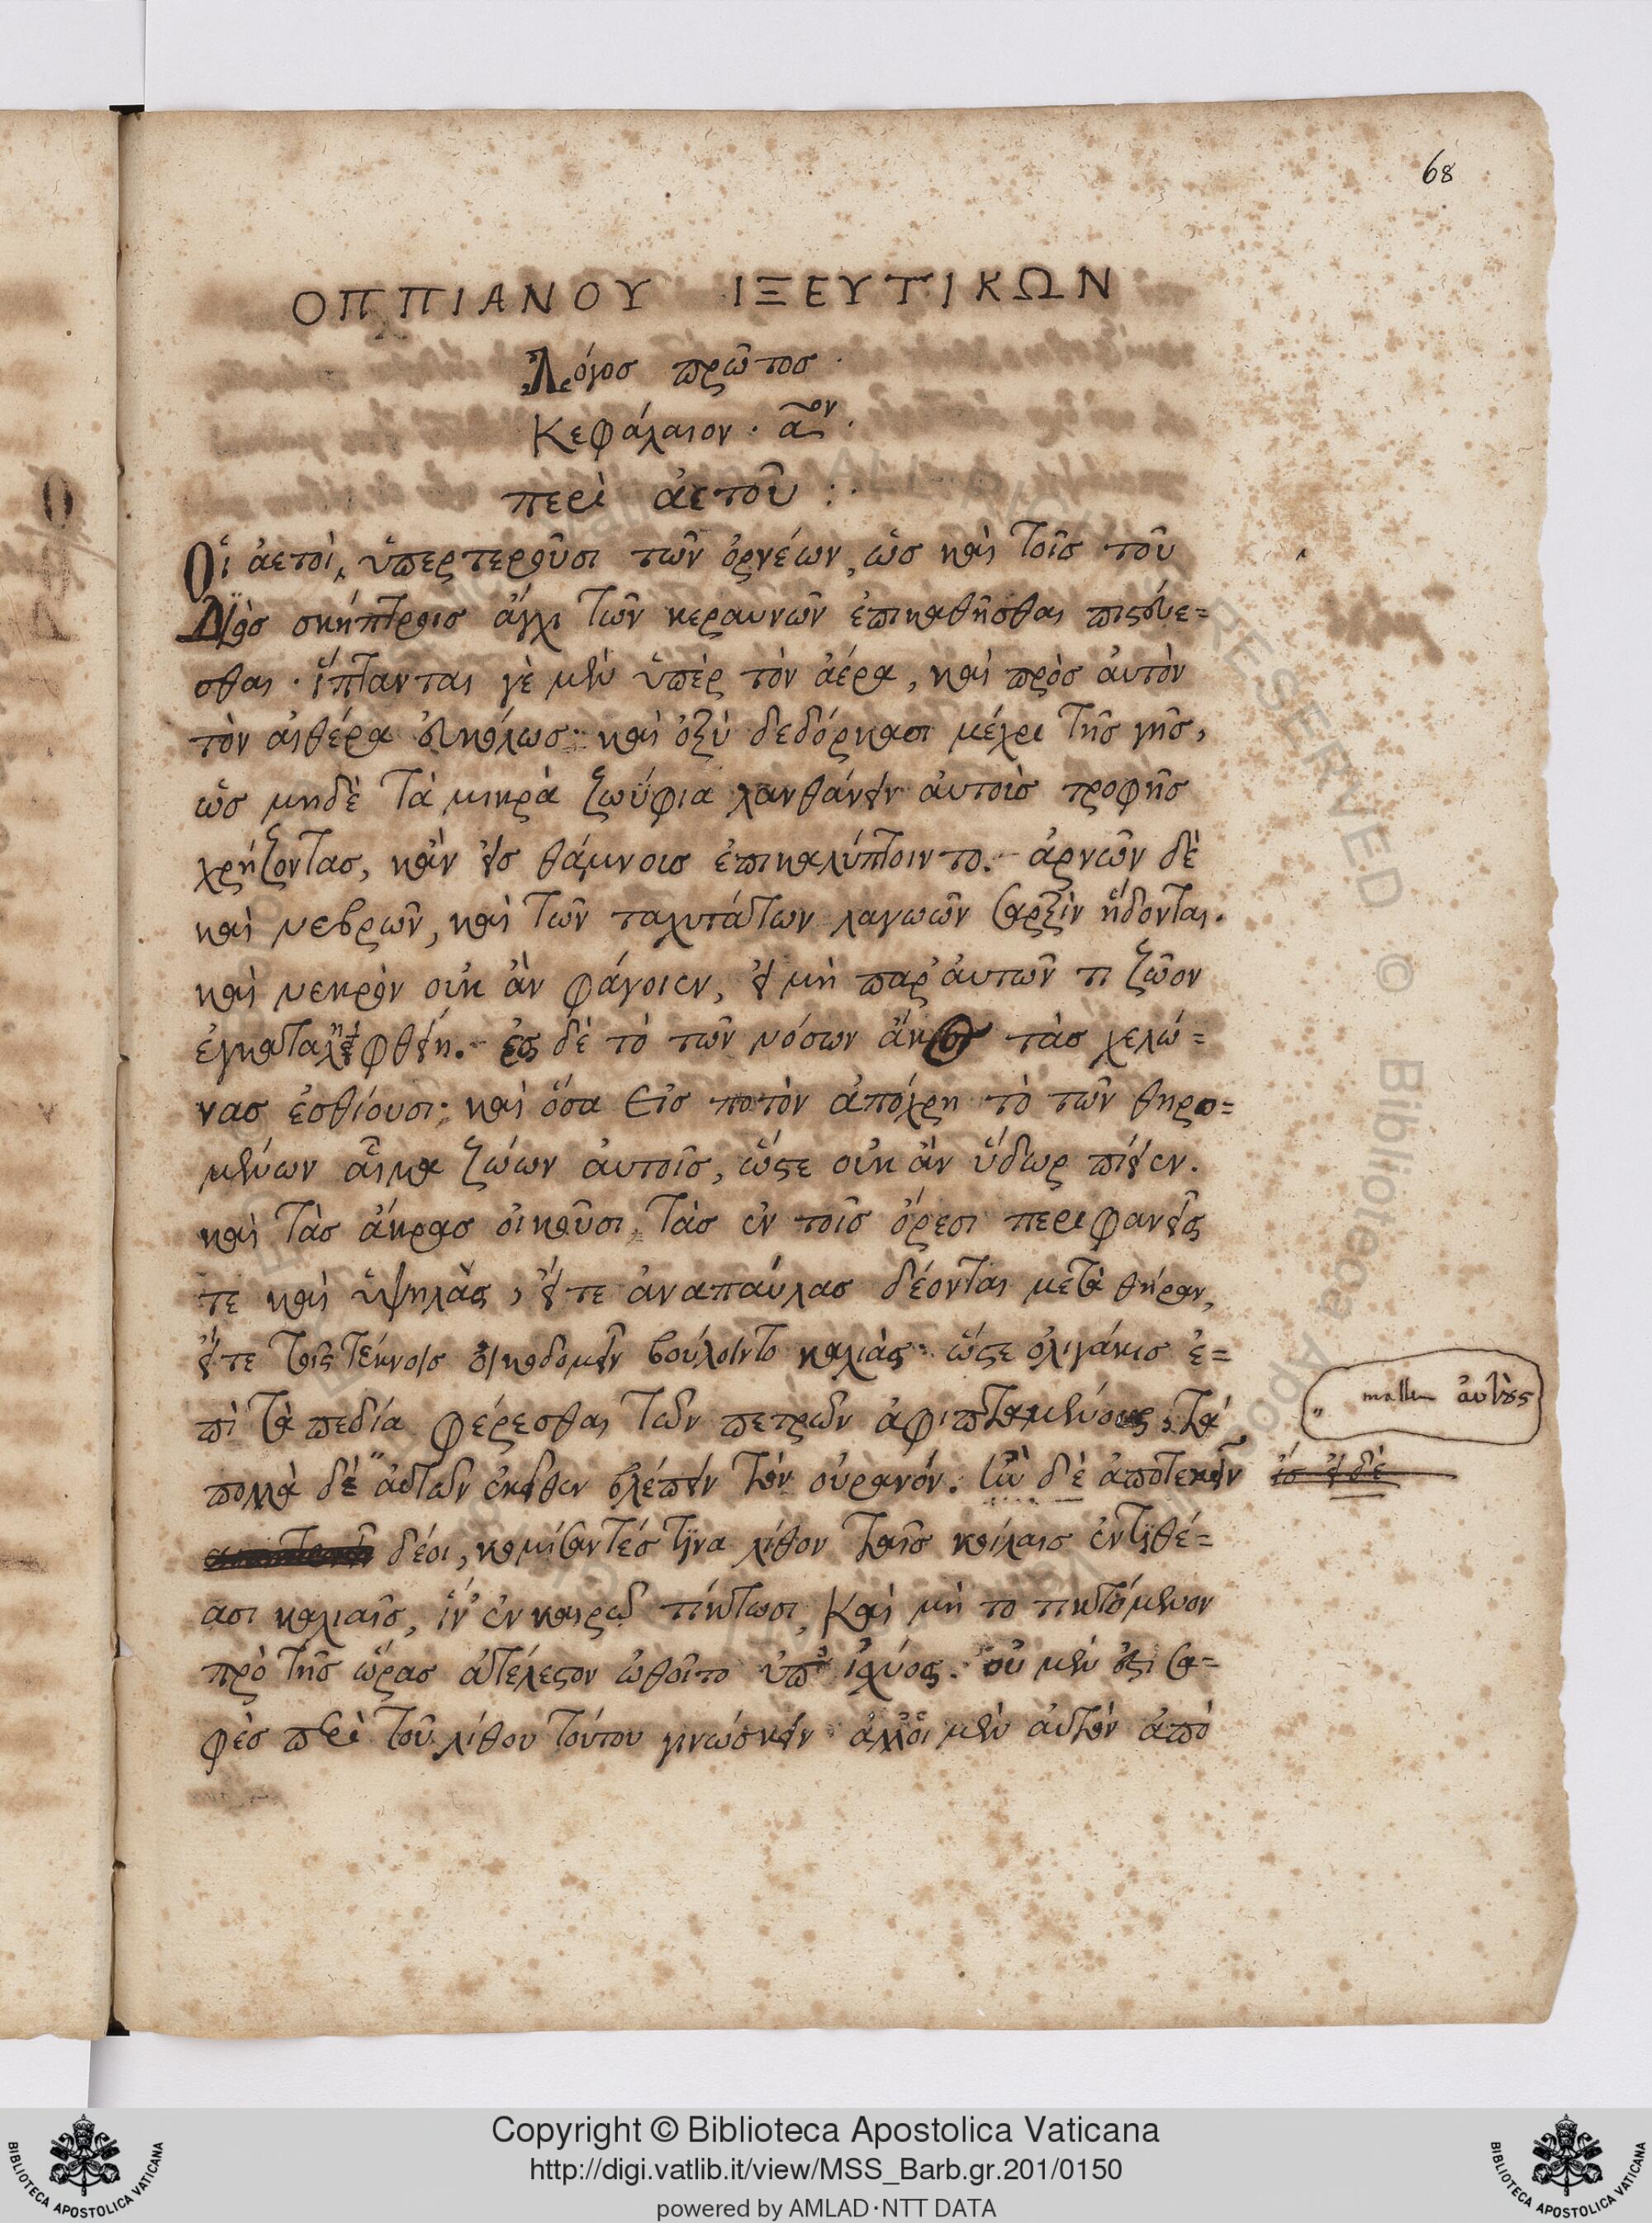 68
ΟΠΠΙΑΝΟΥ ΙΞΕΥΤΙΚΩΝ
Λόγος πρῶτος .
Κεφάλαιον . α^ον .
περὶ ἀετοῦ : .
Οἵ ἀετοὶ, ὑπερτεροῦσι τῶν ὀρνέων, ὡς καὶ τοῖς τοῦ
Διὸς σκήπτροις ἄγχι τῶν κεραυνῶν ἐπικαθῆσθαι πιστεύε=
σθαι . ἵπτανται γὲ μὲν ὑπὲρ τὸν ἀέρα, καὶ πρὸς αὐτὸν
τὸν αἰθέρα εὐκόλως· καὶ ὀξὺ δεδόρκασι μέχρι τῆς γῆς,
ὡς μηδὲ τὰ μικρὰ ζωΰφια λανθάνειν αὐτοὺς τροφῆς
χρήζοντας, κἂν εἰς θάμνοις ἐπικαλύπτοιντο. ἀρνῶν δὲ
καὶ νεβρῶν, καὶ τῶν ταχυτάτων λαγωῶν σαρξὶν ἥδονται.
καὶ νεκρὸν οὐκ ἂν φάγοιεν, εἰ μὴ παρ' αὐτῶν τι ζῶον
ἐγκαταληφθείη. ἐς δὲ τὸ τῶν νόσων ἄκος τὰς χελώ=
νας ἐσθίουσι· καὶ ὅσα εἰς ποτὸν ἀπόχρη τὸ τῶν θηρο=
μένων αἷμα ζώων αὐτοῖς, ὥστε οὐκ ἂν ὕδωρ πίειεν.
καὶ τὰς ἄκρας οἰκοῦσι, τὰς ἐν τοῖς ὄρεσι περιφανεῖς
τε καὶ ὑψηλὰς, εἴτε ἀναπαύλας δέονται μετὰ θήραν,
εἴτε τοῖς τέκνοις οἰκοδομεῖν βούλοιντο καλιὰς· ὥστε ὀλιγάκις ἐ=
πὶ τὰ πεδία φέρεσθαι τῶν πετρῶν ἀφιπταμένους, τὰ
πολλὰ δὲ " αὐτῶν ἐκεῖθεν βλέπειν τὸν οὐρανόν. ὠὰ δὲ ἀποτεκεῖν
δέοι, κομίσαντές τινα λίθον ταῖς κοίλαις ἐντιθέ=
ασι καλιαῖς, ἵν' ἐν καιρῷ τίκτωσι, καὶ μὴ το τικτόμενον
πρὸ τῆς ὥρας ἀτέλεστον ὠθοῖτο ὑπ' ἰλύος. οὐ μὲν ἔστι σα=
φὲς περὶ τοῦ λίθου τούτου γινώσκειν· ἀλλ' οἱ μὲν αὐτὸν ἀπὸ
" mallem αὐτοὺς
Copyright © Biblioteca Apostolica Vaticana
http://digi.vatlib.it/view/MSS_Barb.gr.201/0150
powered by AMLAD·NTT DATA
BIBLIOTECA APOSTOLICA VATICANA
BIBLIOTECA APOSTOLICA VATICANA